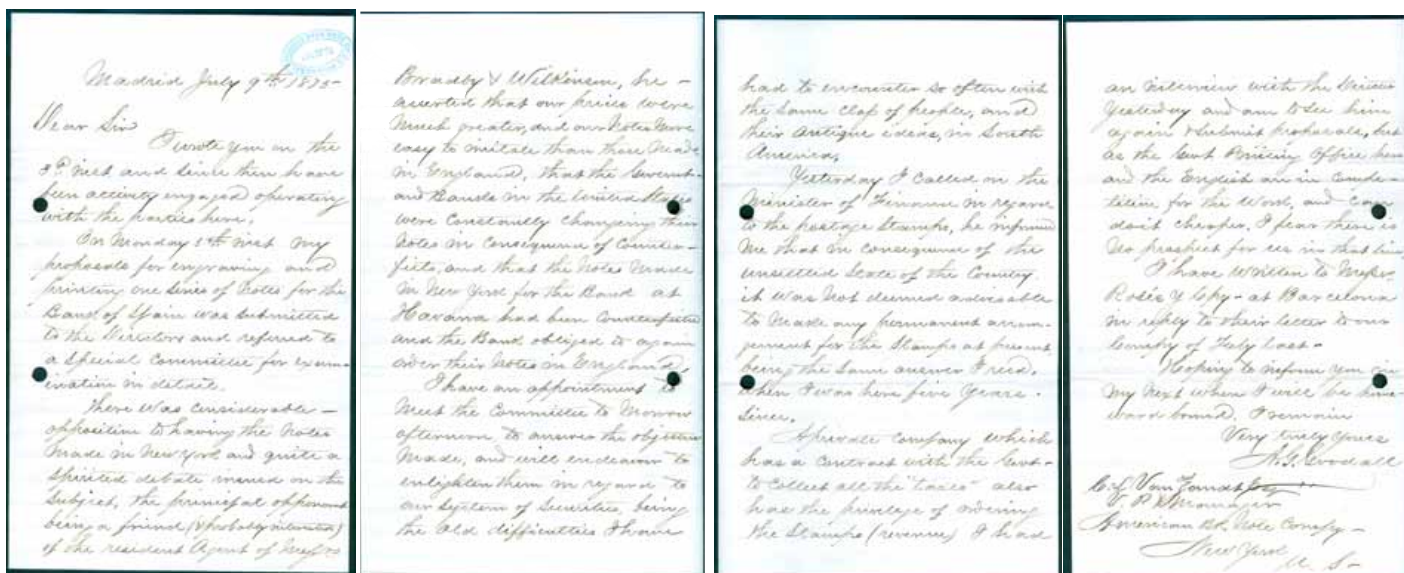 Madrid July 9th 1875-
Dear Sir
I wrote you on the
3d inst and since then have
been activly engaged operating
with the parties here.
On Monday 5th inst my
proposals for engraving and
printing one series of Notes for the
Bank of Spain was submitted
to the Directors and referred to
a special committee for exam-
ination in detail.
There was considerable -
opposition to having the Notes
made in New York and quite a
spirited debate insued on the
subject, the principal opponent
being a friend (& probably interested)
of the resident Agent of Messrs
Bradby & Wilkinson, he -
asserted that our prices were
much greater, and our Notes more
easy to imitate than those made
in England, that the Governt-
and Banks in the United States
were constantly changing their
Notes in consequence of Counter-
feits, and that the Notes made
in New York for the Bank at
Havana had been Counterfeited
and the Bank obliged to again
order their Notes in England.
I have an appointment to
meet the Committee to Morrow
afternoon, to answer the objections
made, and will endeavour to
enlighten them in regard to
our System of Securities, being
the old difficulties I have
had to encounter so often with
the same class of people, and
their Antique ideas, in South
America.
Yesterday I called on the
Minister of Finance in regard
to the postage Stamps, he informed
me that in consequence of the
unsettled State of the Country
it was not deemed advisable
to make any permanent arran-
gement for the Stamps at present,
being the same answer I recd.
when I was here five years -
since.
A private Company which
has a contract with the Govt-
to collect all the "taxes" also
has the privilege of ordering
the Stamps (revenue) I had
an interview with the Director
Yesterday and am to see him
again & submit proposals, but
as the Govt Printing Office here
and the English are in Compe-
tition for the Work, and can
do it cheaper, I fear there is
no prospect for us in that line
I have written to Messrs
y Copy- at Barcelona
in reply to their letter to our
Compy of July last-
Hoping to inform you in
my next when I will be home-
ward bound, I remain
Very truly yours
Goodall
C. L. Van Zandt
V. P. & Manager
American Bk. Note Compy-
New York
U. S-